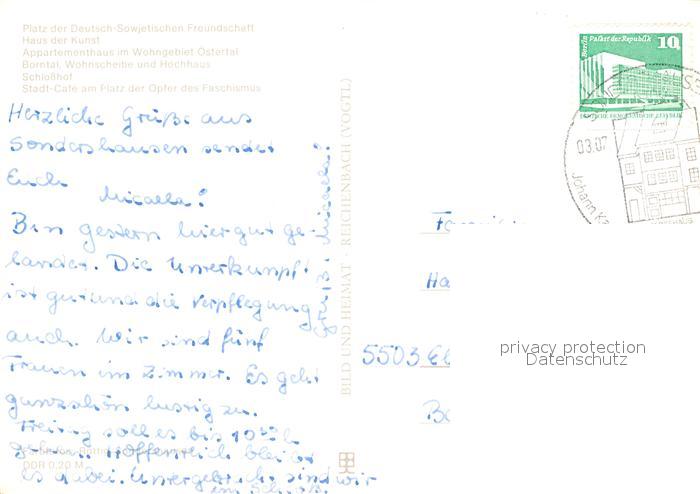 Platz der Deutsch-Sowjetischen Freundschaft
Haus der Kunst
Appartementhaus im Wohngebiet Östertal
Borntal, Wohnscheibe und Hochhaus
Schloßhof
Stadt-Café am Platz der Opfer des Faschismus
Herzliche Grüße aus
Sondershausen sendet
Euch
Micaela!
Bin gestern hier gut ge-
landet. Die Unterkunft
ist gut und die Verpflegung
auch. Wir sind fünf
Frauen im Zimmer. Es geht
ganz schön lustig zu.
Freitag soll es bis 10
Hoffentlich bleibt
es dabei. Untergebracht sind wir
im Schloß.
DDR 0,20 M
BILD UND HEIMAT · REICHENBACH (VOGTL)
Berlin Palast der Republik 10
DEUTSCHE DEMOKRATISCHE REPUBLIK
03.07
Johann Ka
Ha
5503 El
privacy protection
Datenschutz